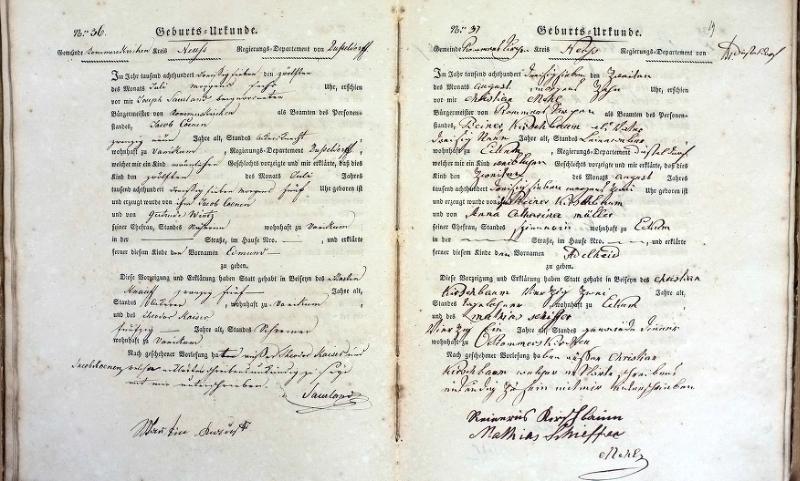 Nro 36. Geburts-Urkunde.
Gemeinde Rommerskirchen Kreis Neuss Regierungs-Departement von Düsseldorff
Im Jahr tausend achthundert dreißig sieben den zwölften
des Monats Juli morgens sechs Uhr, erschien
vor mir Joseph Sauland
Bürgermeister von Rommerskirchen als Beamten des Personen-
standes, Jacob Coenen
zwanzig neun Jahre alt, Standes Ackerknecht
wohnhaft zu Vanikum, Regierungs-Departement Düsseldorff,
welcher mir ein Kind männlichen Geschlechts vorzeigte und mir erklärte, daß dies
Kind den zwölften des Monats Juli Jahres
tausend achthundert dreißig sieben morgens fünf Uhr geboren ist
und erzeugt wurde von ihm Jacob Coenen
und von Gertrude Wirtz
seiner Ehefrau, Standes wohnhaft zu Vanikum
in der Straße, im Hause Nro. , und erklärte
ferner diesem Kinde den Vornamen Edmund
zu geben.
Diese Vorzeigung und Erklärung haben Statt gehabt in Beiseyn des
zwanzig fünf Jahre alt,
Standes Ackerer, wohnhaft zu Vanikum,
und des Theodor Kaiser
fünfzig Jahre alt, Standes Schreiner
wohnhaft zu Vanikum
Nach geschehener Vorlesung haben außer Theodor Kaiser und
Jacob Coenen
unterschreiben.
Sauland
Nro 37 Geburts-Urkunde. 19
Gemeinde Rommerskirchen Kreis Neuss Regierungs-Departement von Düsseldorf
Im Jahr tausend achthundert dreißig sieben den zweiten
des Monats August morgens Zehn Uhr, erschien
vor mir Christian Mehl
Bürgermeister von Rommerskirchen als Beamten des Personen-
standes, Reiner Kirschbaum als Vater
dreißig Neun Jahre alt, Standes Leineweber
wohnhaft zu Eckum, Regierungs-Departement Düsseldorf
welcher mir ein Kind weiblichen Geschlechts vorzeigte und mir erklärte, daß dies
Kind den Zweiten des Monats August Jahres
tausend achthundert dreißig sieben morgens Zwei Uhr geboren ist
und erzeugt wurde von ihm Reiner Kirschbaum
und von Anna Catharina Müller
seiner Ehefrau, Standes Spinnerin wohnhaft zu Eckum
in der Straße, im Hause Nro. , und erklärte
ferner diesem Kinde den Vornamen Adelheid
zu geben.
Diese Vorzeigung und Erklärung haben Statt gehabt in Beiseyn des Christian
Kirschbaum Vierzig Zwei Jahre alt,
Standes Tagelöhner, wohnhaft zu Eckum
und des Mathias Schiffer
Vierzig Ein Jahre alt, Standes
wohnhaft zu Rommerskirchen
Nach geschehener Vorlesung haben außer Christian
Kirschbaum welcher erklärte schreibens
unkundig zu sein mit mir Unterschrieben
Reinerus Kirschbaum
Mathias Schieffer
Mehl